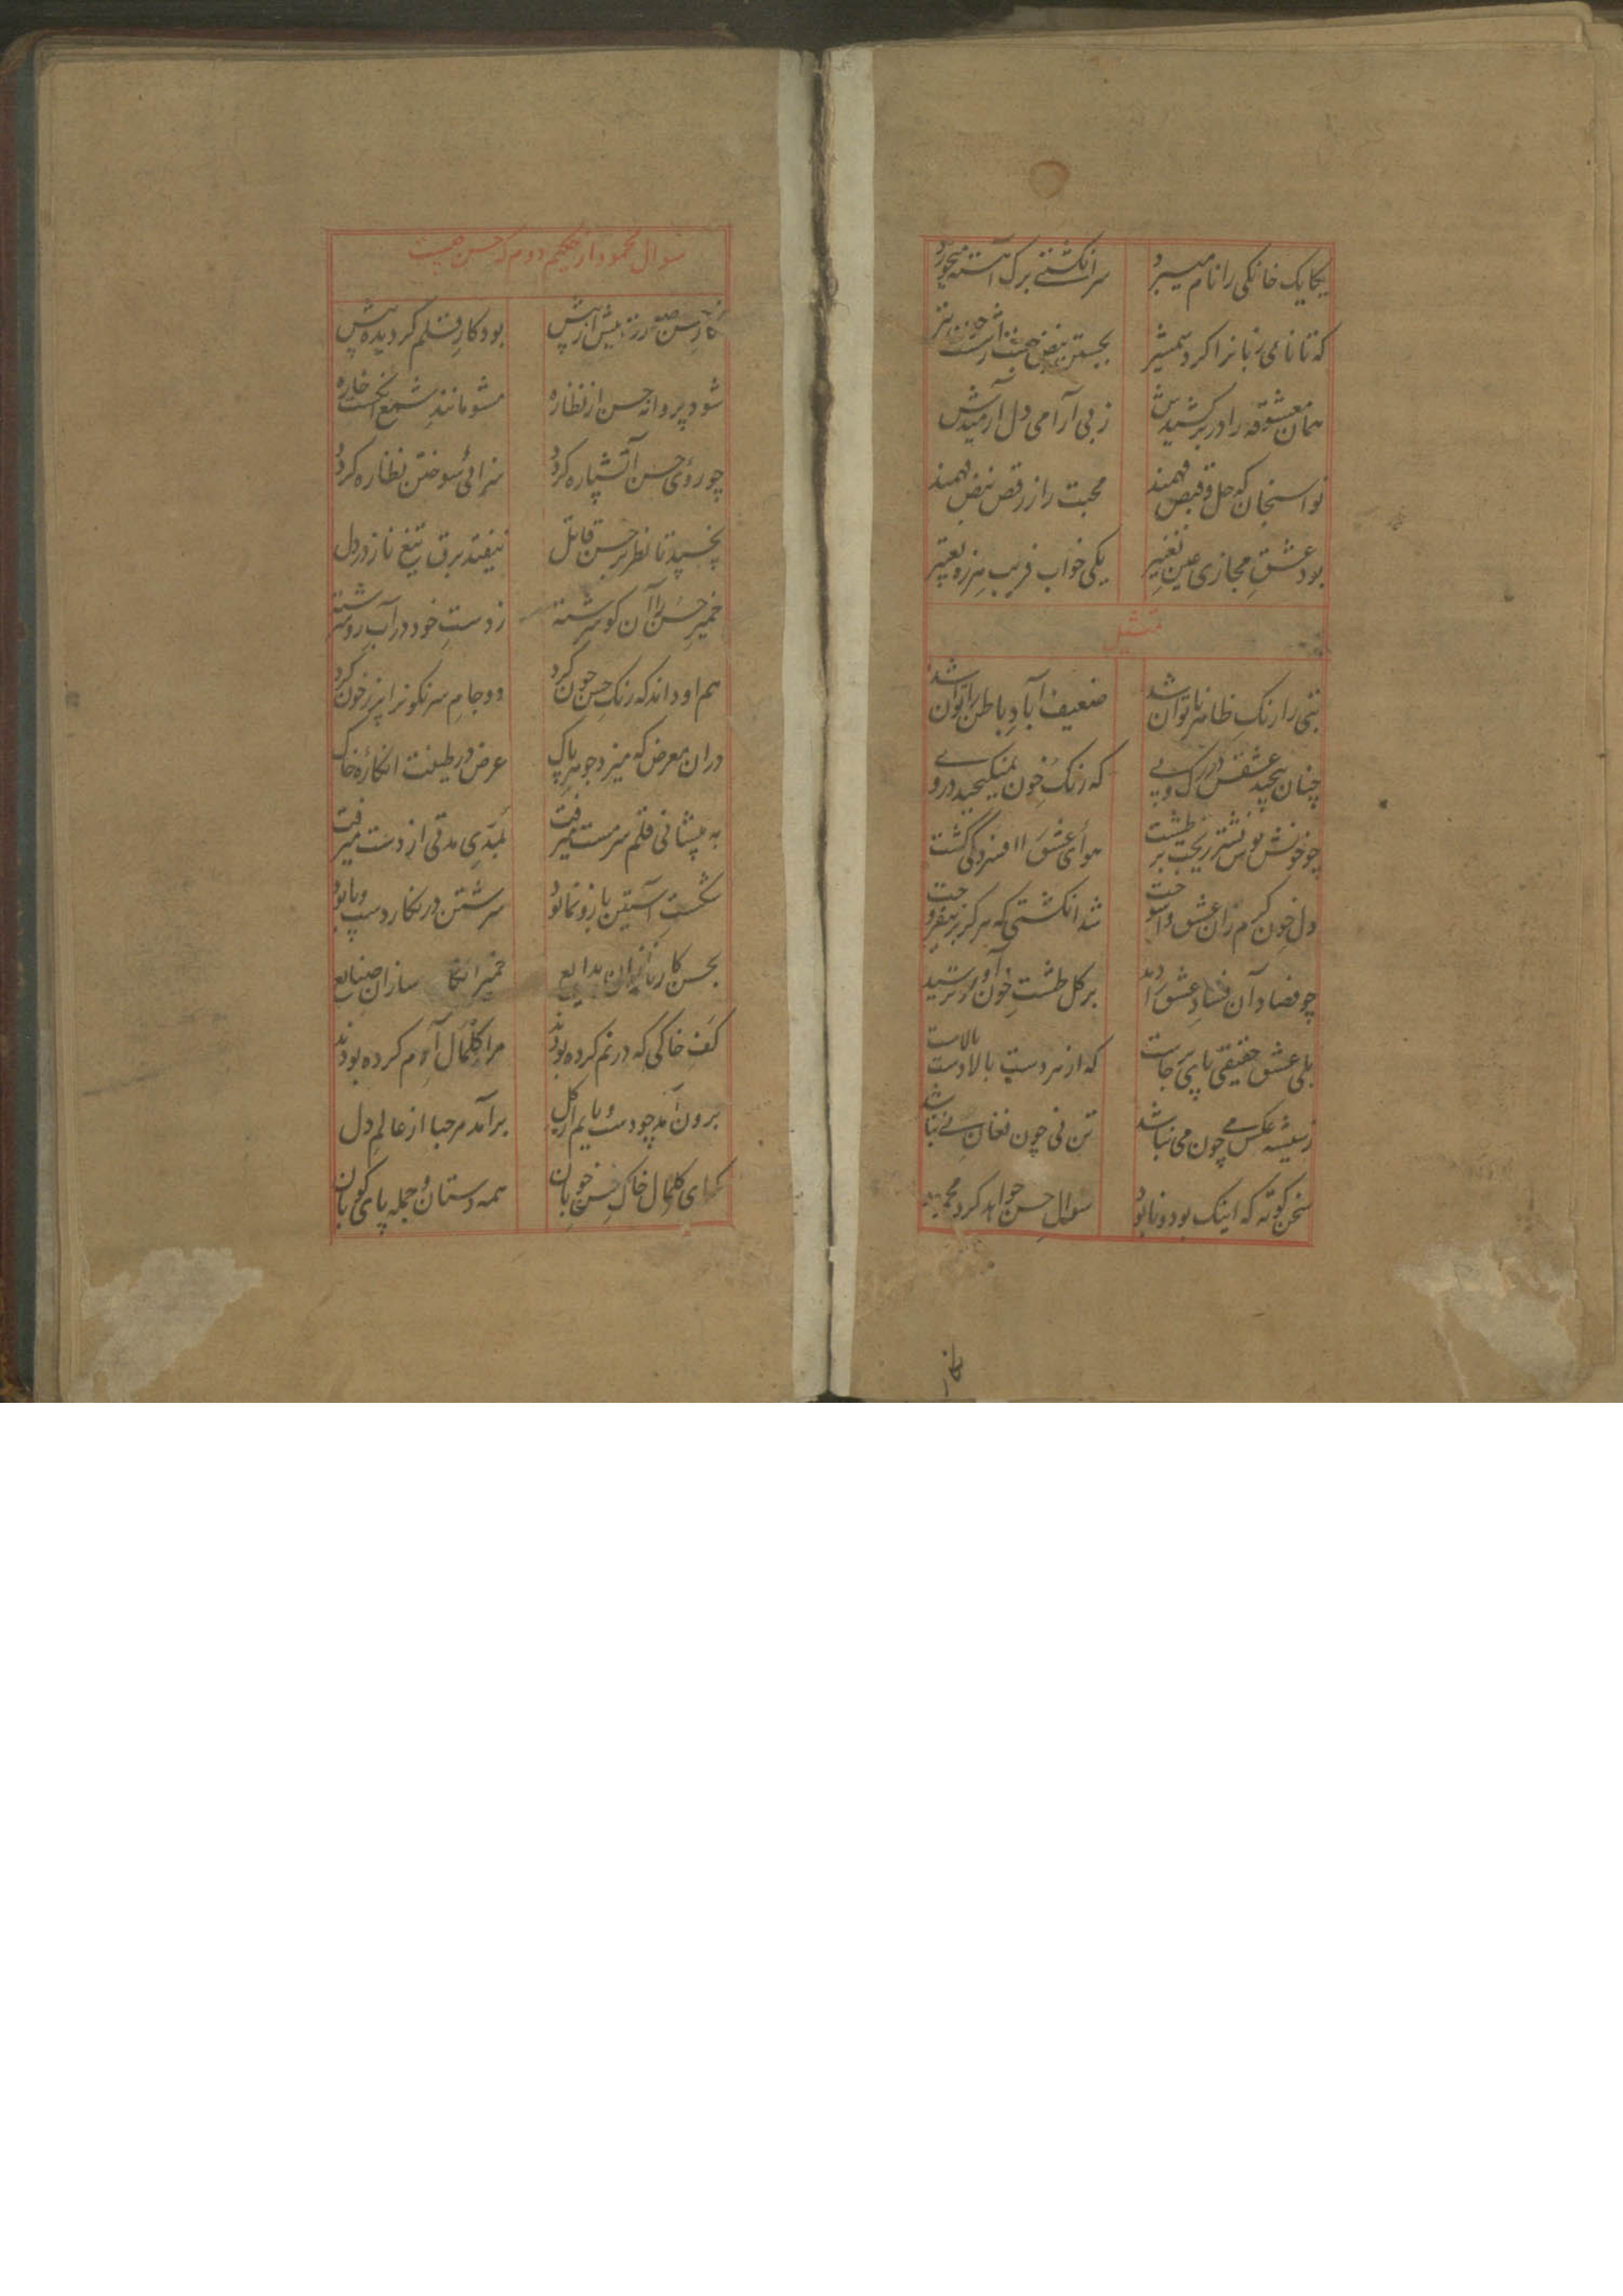 یکایک خانکی را نام میبرد سر انکشتے برک آهسته میخورد
که تا نامی زبانرا کرد شمشیر بجستن نبض جست
همان معشوقه را در بر کشیدش ز بی آرامی دل آرمیدش
نواسنجان که حل و قبض فهمند محبت را ز رقص نبض فهمند
بود عشقِ مجازی عین تغییر یکی خواب فریب هرزه تعبیر
تمثیل
تنی را رنکِ ظاهر ناتوان شد ضعیف آبادِ باطن را توان شد
چنان پیچید عشقش در رک و پی که رنکِ خون نمیکنجید در وے
چو خونش نیشتر بر طشت هوای عشق را افسردکی کشت
دل خون کرم ران عشق وا سوخت شد انکشتی که هرکز بر نیفروخت
چو فصاد آن فسادِ عشق را دید بر کل طشتِ خون آورد
بلی عشق حقیقی پای بر جاست که از هر دست بالا دست بالاست
ز شیشه عکس مے چون می نباشد تن نی چون فغانِ نے نباشد
سخن کوته که اینک بود و نابود سوالِ حسن خواهد کرد محمود
نکار
سوال محمود از حکیم دوم که حسن چیست
نکار حسن بیش از پیش بود کارِ قلم کردیده پیش
شود پروانه حسن از نظاره مشو مانندِ شمع انکشت خاره
چو روئ حسن آتشپاره کردد سزائ سوختن نظاره کردد
نچسپد تا نظر بر حسن قاتل نیفتد برق تیغ ناز در دل
خمیرِ حسن را آن کو سرشته ز دستِ خود در آبِ رو سرشته
هم او داند که رنکِ حسن چون کرد دو جامِ سرنکونرا پر ز خون کرد
دران معرض که میزد جوهرِ پاک عرض در طینت انکارهٔ خاک
به پیشانی قلم سرمست میرفت مدتی از دست میرفت
شکستِ آستین بازو نما بود سرشتن در نکار دست و پا بود
بحسن کار بدایع خمیر سازان صنایع
کفِ خاکی که در نم کرده بودند مرا کلمالِ آدم کرده بودند
برون آمد چو دست و پایم از کل برآمد مرحبا از عالمِ دل
کلمال خاکِ حسن خوبان همه دستان و جمله پای کوبان